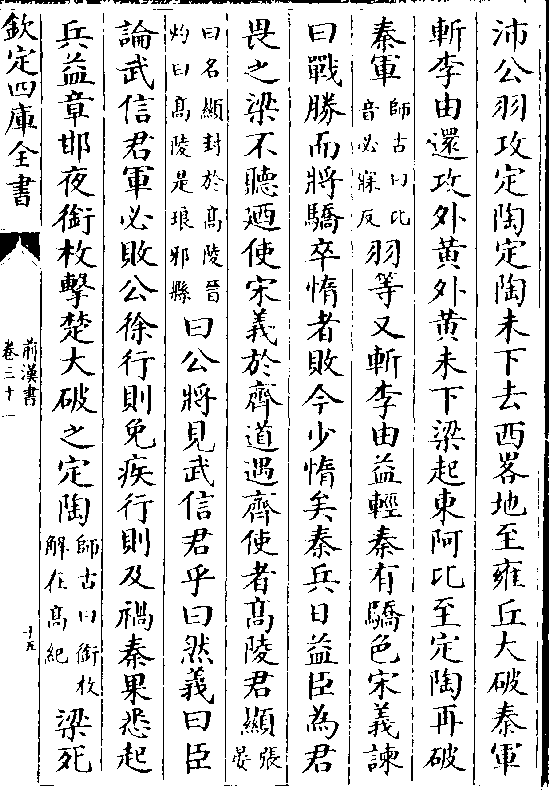 沛公羽攻定陶定陶未下去西畧地至雍丘大破秦軍
斬李由還攻外黄外黄未下梁起東阿比至定陶再破
秦軍師古曰比音必寐反羽等又斬李由益輕秦有驕色宋義諫
曰戰勝而將驕卒惰者敗今少惰矣秦兵日益臣為君
畏之梁不聽廼使宋義於齊道遇齊使者髙陵君顯張晏
曰名顯封於髙陵晉灼曰髙陵是琅邪縣曰公將見武信君乎曰然義曰臣
論武信君軍必敗公徐行則免疾行則及禍秦果悉起
兵益章邯夜銜枚擊楚大破之定陶師古曰銜枚解在髙紀梁死
欽定四庫全書
前漢書
卷三十一
十五